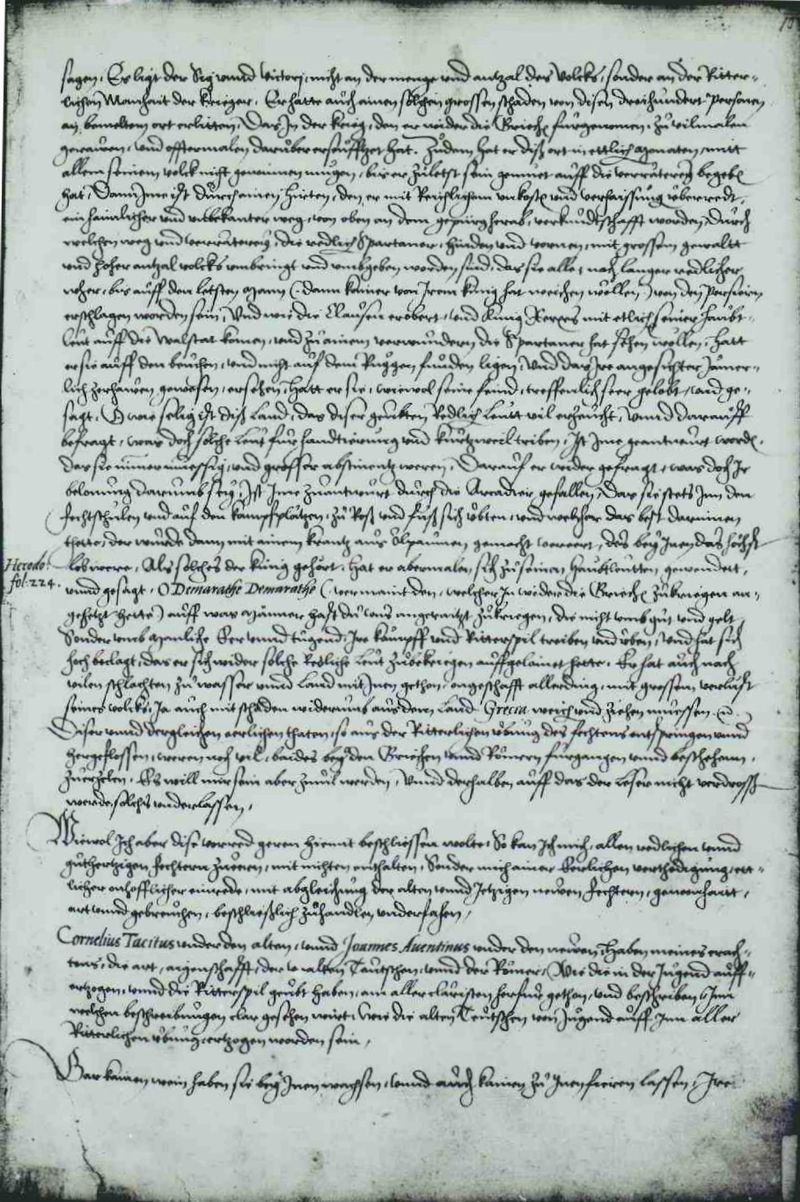 sagen, Es ligt der Sig vnnd victori, nicht an der menge vnd antzal des volcks, sonder an der Ritter-
lichen Manhait der krieger, Er hatte auch ainen solchen grossen schaden von disen dreihundert Personen
an bemeltem ort erlitten, Das In der krieg, den er wider die Griechen furgenomen, zu vilmalen
gerawen, vnd offtermalen darüber ersüfftzet hat. Zudem hat er diß ort in ettlich monaten, mitt
allem seinem volck nitt gewinnen mügen, bis er zuletst sein gemüet auff die verräterey begeben
hat, Dann Ime ist durch ainen hirten, den er mit Reichlichem vnkosten vnd verhaissung uberredt,
ein haimlicher vnd vnbekanter weg, von oben an dem gepürg herab, verkundtschafft worden, durch
welchen weg vnd verräterey, die redlichen Spartaner, hinden vnd vornen, mit grossem gewaltt
vnd hoher antzal volcks vmbringt vnd vmbgeben worden sind, das sie alle, nach langer redlicher
wher, bis auff den letsten mann (dann kainer von Irem kunig hat weichen wöllen) von den Persiern
erschlagen worden sein, Vnd wie die Clausen erobert, vnd kunig Xerxes mit ettlichen seiner haubt-
leut auff die walstat komen, vnd zu ainem verwundern die Spartaner hat sehen wöllen, hatt
er sie auff den beuchen, vnd nicht auf dem Ruggen funden ligen, Vnd das Ire angesichter Jämer-
lich zerhawen gewesen, ersehen, hatt er sie, wiewol seine feind, treffenlich seer gelobt, vnd ge-
sagt, O wie selig ist diß Land, das diser geübten Redlichen Leutt vil erzeücht, Vnnd darauff
befragt, was doch solche Leut für handtierung vnd kurtzweil triben, Ist Ime geantwurt worden,
das sie nimer müessig, vnd grosser abstinentz weren, Darauf er wider gefragt, was doch Ir
belonung darumb sey, Ist Ime zu antwurt durch die Arcadier gefallen, Das sie stets Inn den
fechtschulen vnd auf den kampfplätzen, zu Roß vnd fuß sich übten, vnd welcher das best darinnen
thette, der wurde dann mit ainem krantz aus Ölpaumen gemacht vereert, des bey Inen das höchst
Herodo:
fol: 224.
lob were, Als solches der kunig gehört, hat er abermalen, sich zu seinen haubtleutten gewendett,
vnnd gesagt, O Demarathe Demarathe (vermaint den, welcher In wider die Griechen zubkriegen an-
gehetzt hette) auff was männer hast du vns angeraitzt zukriegen, die nicht vmb gut vnd gelt,
Sonder vmb manliche Eer vnnd tugend, Ire kämpff vnd Ritterspil treiben vnd üben, Vnd hat sich
hoch beclagt, das er sich wider solche Redliche leut zubekriegen auffgelainet hette. Er hat auch nach
vilen schlachten zu wasser vnnd Land mit Inen gethon, vngeschafft allerding, mit grossem verlust
seines volcks, Ja auch mit schaden widerumb aus dem Land Grecia weichen vnd ziehen muessen. etc.
Diser vnnd dergleichen eerlichen thaten, so aus der Ritterlichen übung des fechtens entspringen vnnd
hergeflossen, weren noch vil, baides bey den Griechen vnnd Römern fürgangen vnnd beschehenn,
zuerzelen. Es will mir sein aber zuuil werden, Vnnd derhalben auff das der Leser nicht verdrossen
werde, solchs vnderlassen,
Wiewol Ich aber dise vorred geren hiemit beschliessen wolte, So kan Ich mich, allen redlichen vnnd
guthertzigen fechtern zueeren, mit nichten enthalten, Sonder mich ainer kerlichen verthedigung, ett-
licher vnhofflicher einrede, mit abgleichung der alten vnnd Jetzigen newen fechtern, gewonhaitt,
art vnnd gebreuchen, beschließlich zuhandlen vnderfahen,
Cornelius Tacitus vnder den alten, vnnd Joannes Auentinus vnder den newen, Haben meines erach-
tens, die art, aigenschafft, der vralten Teutschen, vnnd der Römer, Wie die in der Jugend auff-
ertzogen, vnnd die Ritterspil geübt haben, am aller claristen herfür gethon, vnd beschriben, Inn
welchen beschreibungen clar gesehen wirt, wie die alten Teutschen von Jugend auff, Inn aller
Ritterlichen übung, ertzogen worden sein,
Gar kainen wein haben sie bey Inen wachsen, vnnd auch kainen zu Inen fieren lassen, Ire